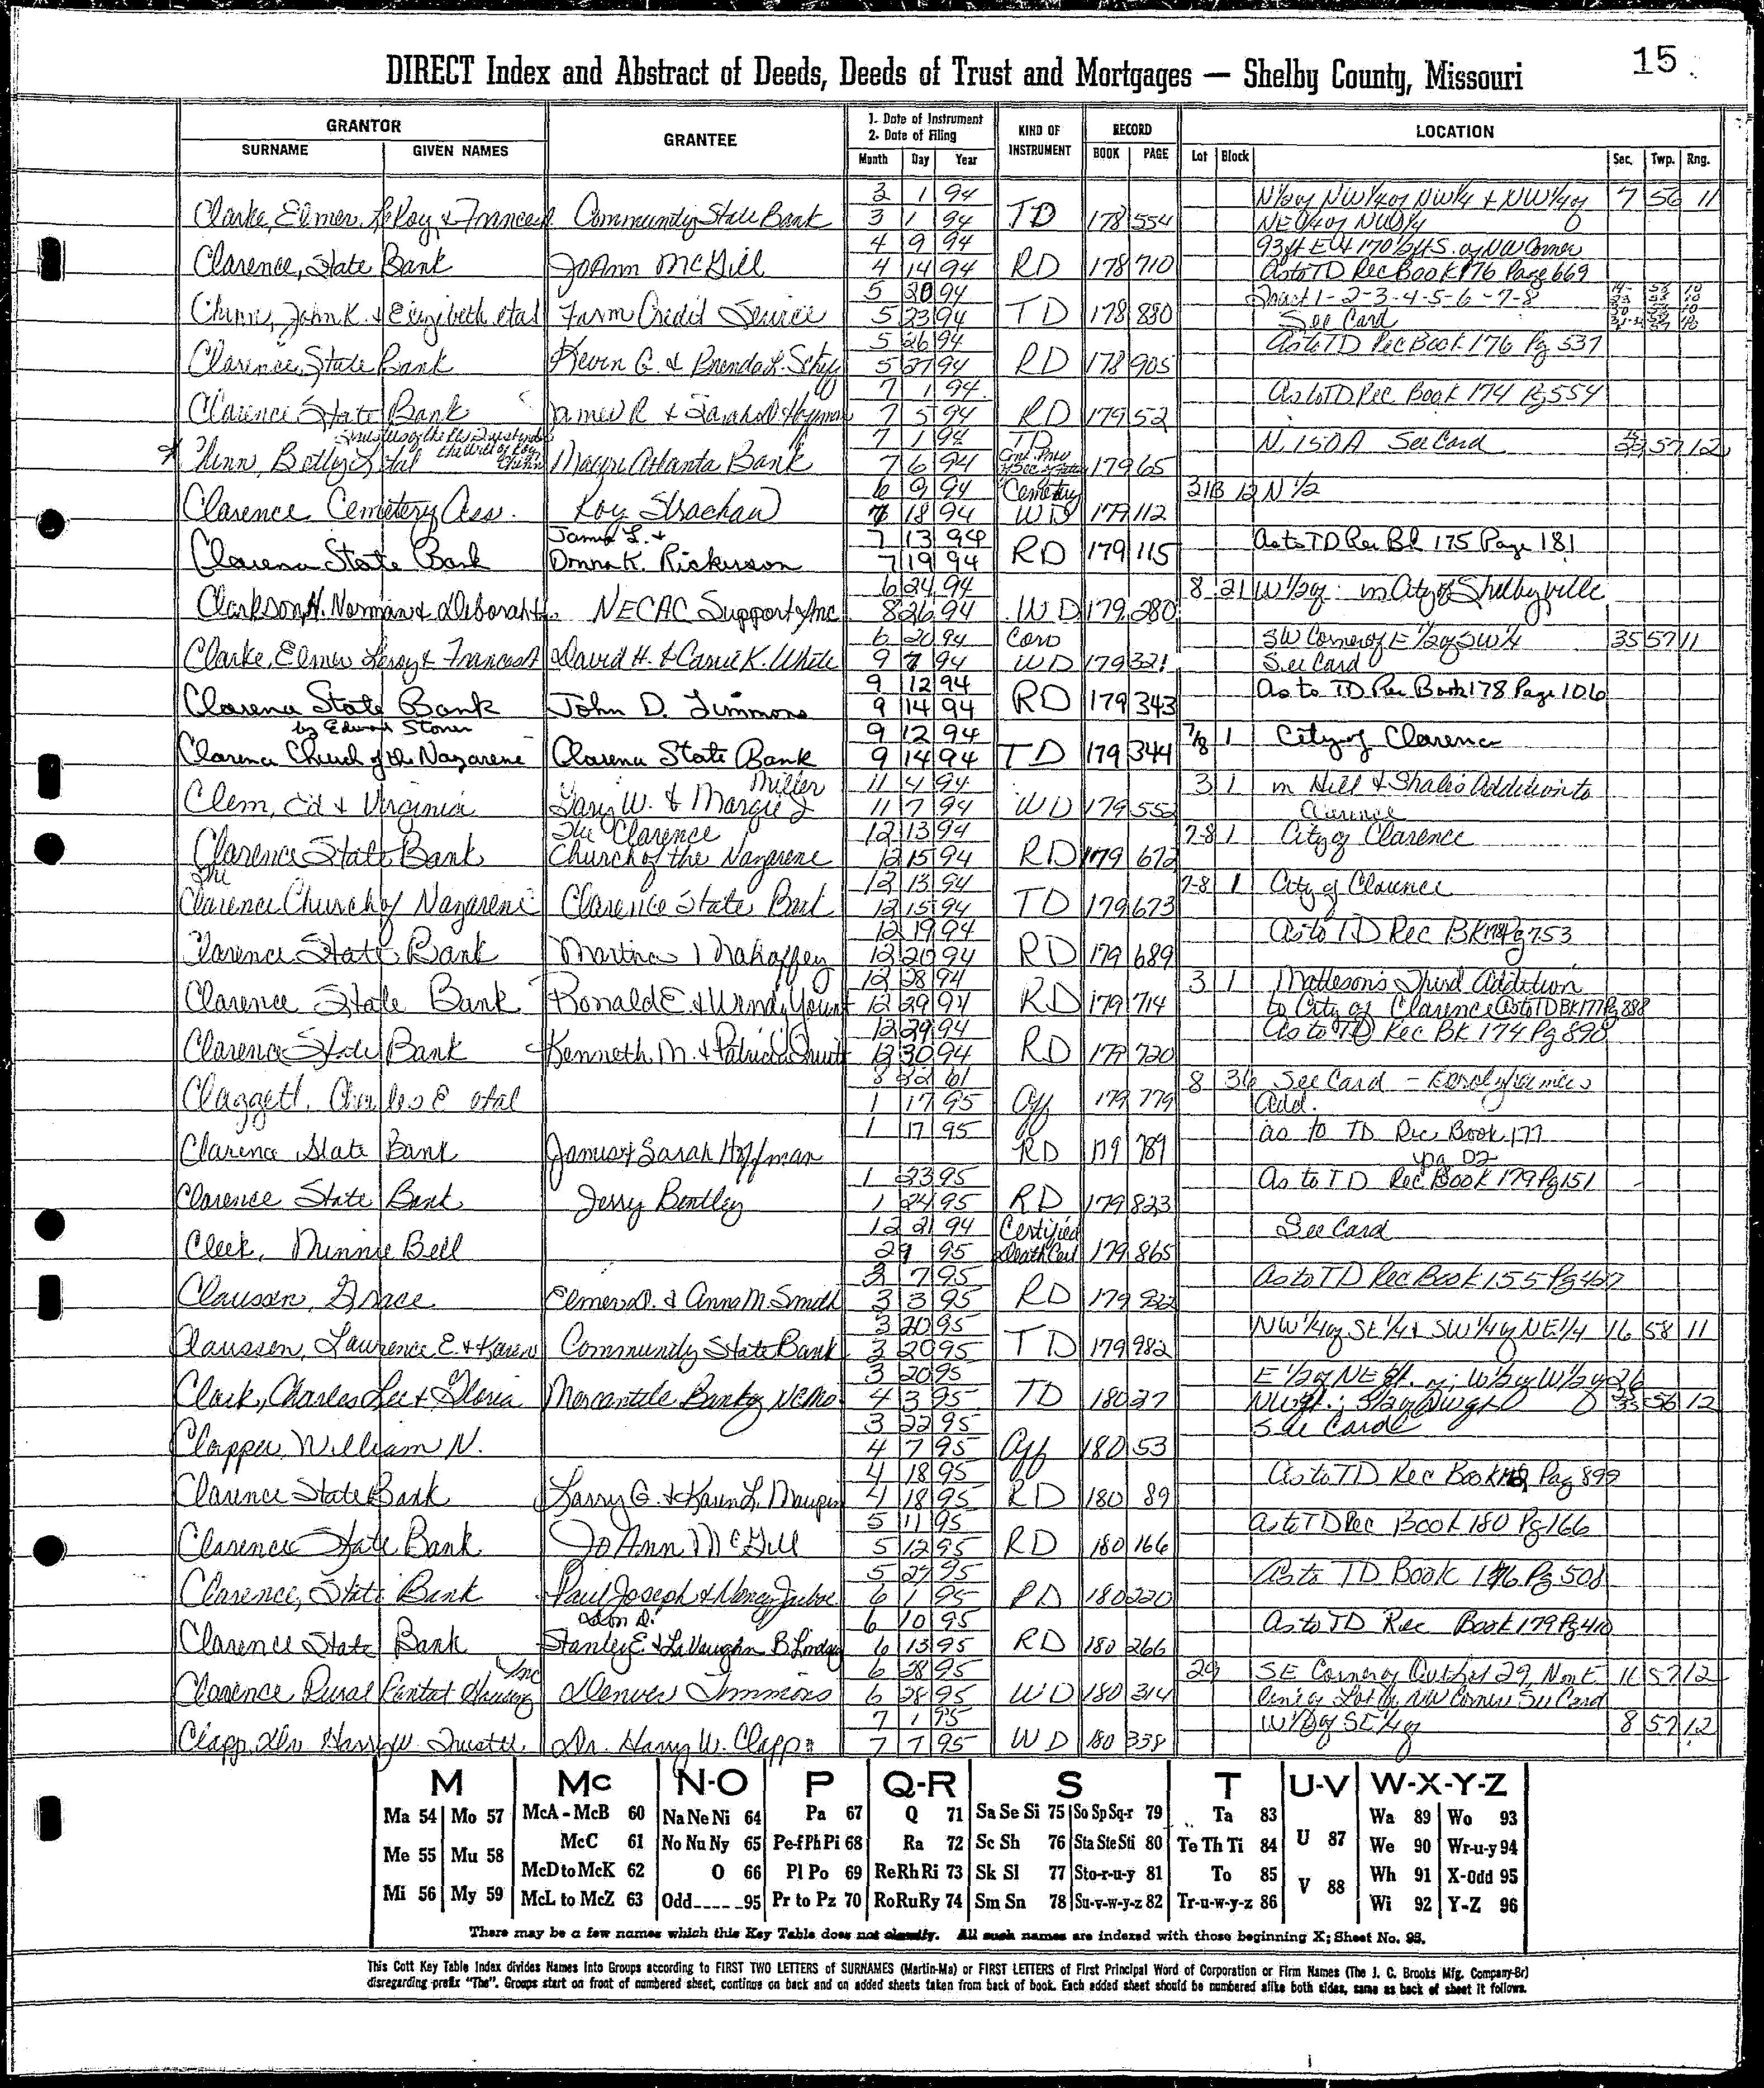 15
DIRECT Index and Abstract of Deeds, Deeds of Trust and Mortgages — Shelby County, Missouri
GRANTOR
SURNAME GIVEN NAMES
GRANTEE
1. Date of Instrument
2. Date of Filing
Month Day Year
KIND OF INSTRUMENT
RECORD
BOOK PAGE
LOCATION
Lot Block Sec. Twp. Rng.
3 1 94 N 1/2 of NW 1/4 of NW 1/4 & NW 1/4 of 7 56 11
Clarke, Elmer LeRoy & Frances Community State Bank 3 1 94 TD 178 554 NE 1/4 of NW 1/4
4 9 94 93 ft E & 170 1/2 ft S. of NW Corner
Clarence, State Bank JoAnn McGill 4 14 94 RD 178 710 As to TD Rec Book 176 Page 669
5 20 94 Tract 1-2-3-4-5-6-7-8
Chinn, John K. & Elizabeth etal Farm Credit Service 5 23 94 TD 178 880 See Card
5 26 94 As to TD Rec Book 176 Pg 537
Clarence State Bank Kevin G. & Brenda L. 5 27 94 RD 178 905
7 1 94 As to TD Rec Book 174 Pg 554
Clarence State Bank James R & Sarah 7 5 94 RD 179 52
7 1 94 TD N. 150 A See Card 57 12
Chinn, Betty etal Macon Atlanta Bank 7 6 94 179 65
6 9 94 Cemetery 31B 12 N 1/2
Clarence Cemetery Ass. Roy Strachan 7 18 94 WD 179 112
James L. & 7 13 94 As to TD Rec Bk 175 Page 181
Clarence State Bank Donna K. Rickerson 7 19 94 RD 179 115
6 24 94 8 21 W 1/2 of in City of Shelbyville
Clarkson, H. Norman & Deborah NECAC Support Inc 8 26 94 WD 179 280
6 20 94 Corp SW Corner of E 1/2 of SW 1/4 35 57 11
Clarke, Elmer Leroy & Frances David H. & Carrie K. White 9 7 94 WD 179 321 See Card
9 12 94 As to TD Rec Book 178 Page 106
Clarence State Bank John D. Timmons 9 14 94 RD 179 343
by Edward Stoner 9 12 94 7/8 1 City of Clarence
Clarence Church of the Nazarene Clarence State Bank 9 14 94 TD 179 344
Miller 11 4 94 3 1 in Hill & Shale's Addition to
Clem, Ed & Virginia Gary W. & Margie J 11 7 94 WD 179 552 Clarence
The Clarence 12 13 94 7-8 1 City of Clarence
Clarence State Bank Church of the Nazarene 12 15 94 RD 179 672
The 12 13 94 7-8 1 City of Clarence
Clarence Church of Nazarene Clarence State Bank 12 15 94 TD 179 673
12 19 94 As to TD Rec BK 178 Pg 753
Clarence State Bank Martina Mahaffey 12 20 94 RD 179 689
12 28 94 3 1 Matteson's Third Addition
Clarence State Bank Ronald E & Wendy Yount 12 29 94 RD 179 714 to City of Clarence As to TD BK 177 Pg 388
12 29 94 As to TD Rec BK 174 Pg 898
Clarence State Bank Kenneth M. & Patricia 12 30 94 RD 179 720
8 22 61 8 36 See Card –
Claggett, Charles E etal 1 17 95 Aff 179 779 Add.
1 17 95 as to TD Rec Book 177
Clarence State Bank James & Sarah Hoffman RD 179 789
1 23 95 As to TD Rec Book 179 Pg 151
Clarence State Bank Jerry Bentley 1 24 95 RD 179 823
12 21 94 Certified See Card
Cleek, Minnie Bell 2 9 95 Death Cert 179 865
3 7 95 As to TD Rec Book 155 Pg
Claussen, Grace Elmer D. & Anna M. Smith 3 3 95 RD 179 922
3 20 95 NW 1/4 of SE 1/4 & SW 1/4 of NE 1/4 16 58 11
Claussen, Lawrence E. & Karen Community State Bank 3 20 95 TD 179 982
3 20 95 E 1/2 of NE 1/4 of; W 1/2 of W 1/2 of 26
Clark, Charles Lee & Gloria Mercantile Bank of NEMo 4 3 95 TD 180 27 56 12
3 22 95 See Card
Clapper, William N. 4 7 95 Aff 180 53
4 18 95 As to TD Rec Book Pag 899
Clarence State Bank Larry G. & Karen L. Maupin 4 18 95 RD 180 89
5 11 95 As to TD Rec Book 180 Pg 166
Clarence State Bank JoAnn McGill 5 12 95 RD 180 166
5 27 95 As to TD Book 176 Pg 508
Clarence, State Bank Paul Joseph & Nancy 6 1 95 RD 180 220
6 10 95 As to TD Rec Book 179 Pg 410
Clarence State Bank Stanley E & LaVaughn B Lindsay 6 13 95 RD 180 266
Inc 6 28 95 29 SE Corner of Outlot 29, 11 57 12
Clarence Rural Rental Housing Denver Timmons 6 28 95 WD 180 314 NW Corner See Card
7 1 95 W 1/2 of SE 1/4 of 8 57 12
Clapp, Dr. Harry W. Trustee Dr. Harry W. Clapp 7 7 95 WD 180 338
M Mc N-O P Q-R S T U-V W-X-Y-Z
Ma 54 Mo 57 McA - McB 60 Na Ne Ni 64 Pa 67 Q 71 Sa Se Si 75 So Sp Sq-r 79 Ta 83 U 87 Wa 89 Wo 93
Me 55 Mu 58 McC 61 No Nu Ny 65 Pe-f Ph Pi 68 Ra 72 Sc Sh 76 Sta Ste Sti 80 Te Th Ti 84 We 90 Wr-u-y 94
McD to McK 62 O 66 Pl Po 69 Re Rh Ri 73 Sk Sl 77 Sto-r-u-y 81 To 85 V 88 Wh 91 X-Odd 95
Mi 56 My 59 McL to McZ 63 Odd 95 Pr to Pz 70 Ro Ru Ry 74 Sm Sn 78 Su-v-w-y-z 82 Tr-u-w-y-z 86 Wi 92 Y-Z 96
There may be a few names which this Key Table does not classify. All such names are indexed with those beginning X; Sheet No. 95.
This Cott Key Table Index divides Names into Groups according to FIRST TWO LETTERS of SURNAMES (Martin-Ma) or FIRST LETTERS of First Principal Word of Corporation or Firm Names (The J. C. Brooks Mfg. Company-Br)
disregarding prefix "The". Groups start on front of numbered sheet, continue on back and on added sheets taken from back of book. Each added sheet should be numbered alike both sides, same as back of sheet it follows.